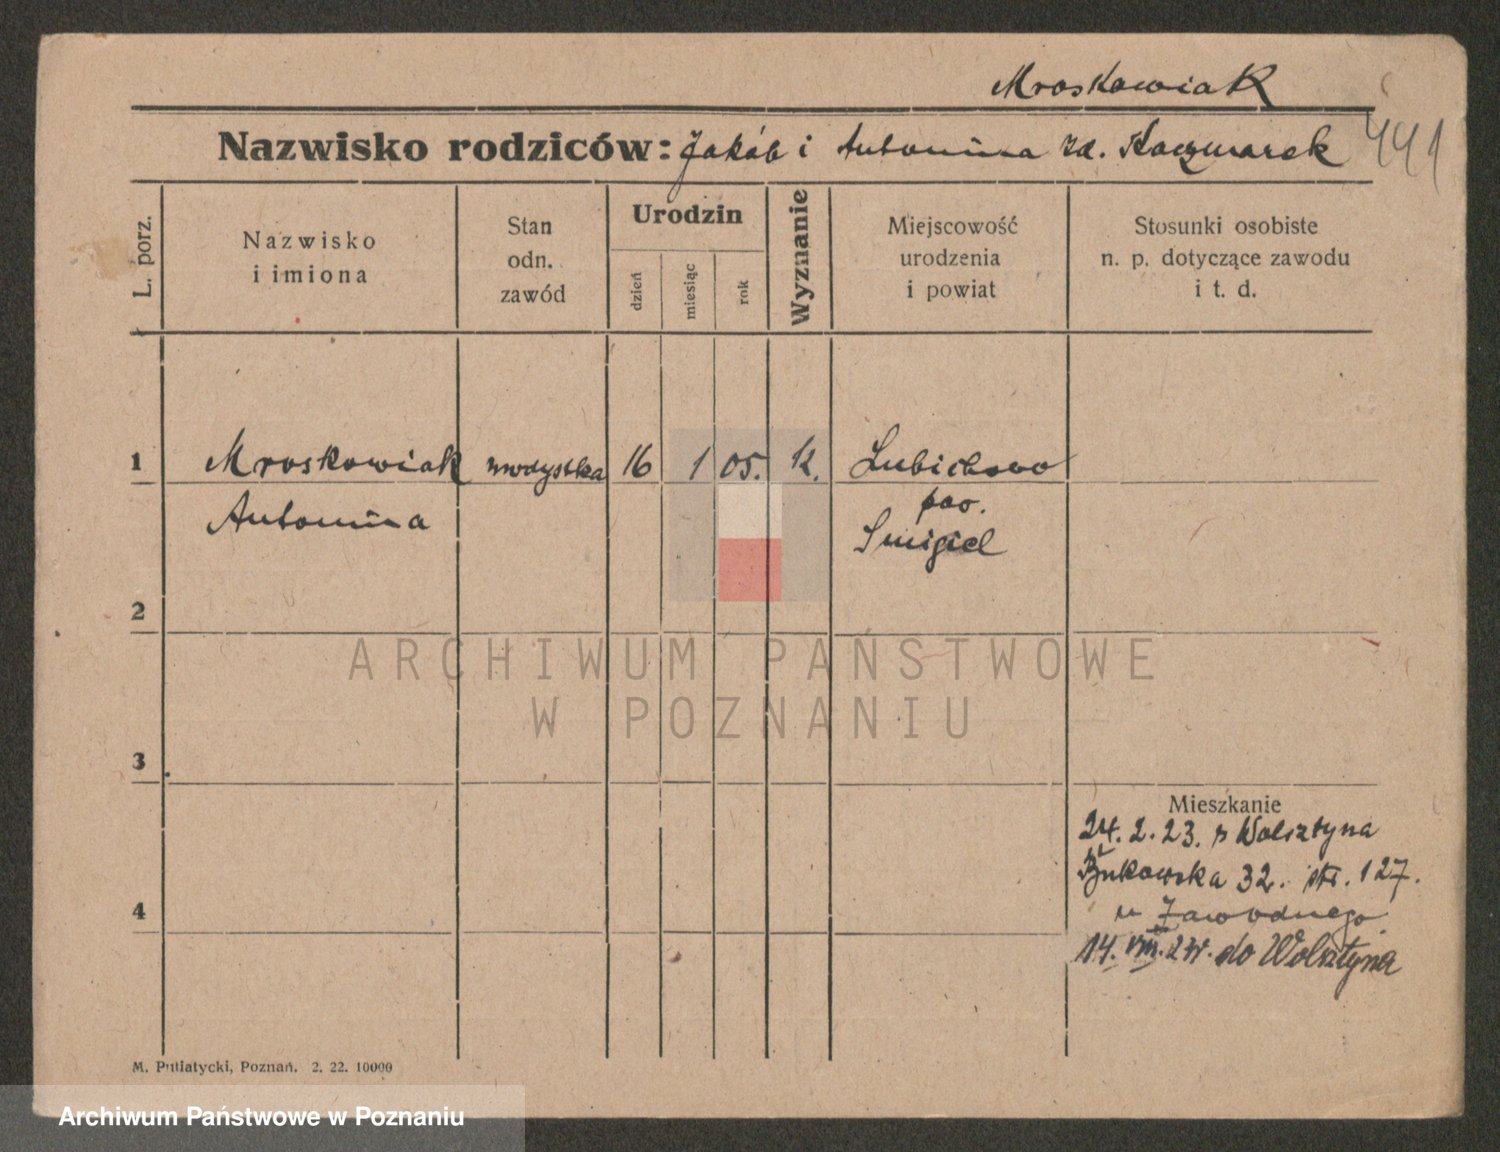 Mroskowiak
Nazwisko rodziców: Jakób i Antonina zd. Kaczmarek 441
L. porz.
Nazwisko
i imiona
Stan
odn.
zawód
Urodzin
dzień
miesiąc
rok
Wyznanie
Miejscowość
urodzenia
i powiat
Stosunki osobiste
n. p. dotyczące zawodu
i t. d.
1 Mroskowiak modystka 16 1 05. k. Lubichowo
Antonina
pow.
Smigiel
2
ARCHIWUM PAŃSTWOWE
W POZNANIU
3
Mieszkanie
24. 2. 23. z Wolsztyna
Bukowska 32. ptr. 127.
4
u Zawodnego
14. VIII. do Wolsztyna
M. Putiatycki, Poznań. 2. 22. 10000
Archiwum Państwowe w Poznaniu